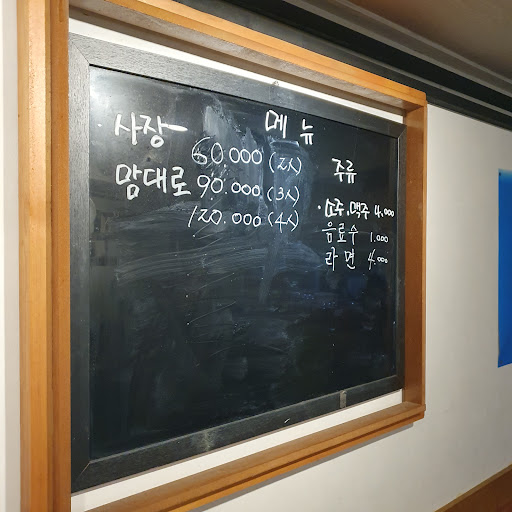 메뉴
사장 60.000 (2人)
맘대로 90.000 (3人)
120.000 (4人)
주류
· 소주, 맥주 4.000
음료수 1.000
라면 4.000